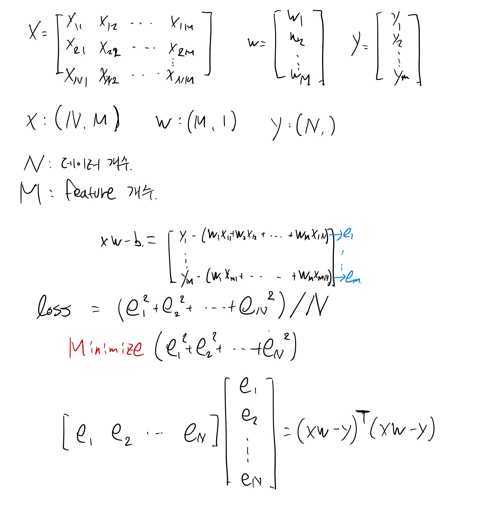 X = [ x₁₁ x₁₂ ⋯ x₁M
x₂₁ x₂₂ ⋯ x₂M
⋮
xN₁ xN₂ ⋯ xNM ] w = [ w₁ w₂ ⋮ wM ] y = [ y₁ y₂ ⋮ ym ]
X : (N, M) w : (M, 1) y : (N, )
N : 데이터 개수.
M : feature 개수.
xw - b = [ y₁ - (w₁x₁₁+w₂x₁₂ + ⋯ + wMx₁M) → e₁
⋮ ⋮
yM - (w₁xM₁ + ⋯ - + wMxMM) ] → em
loss = (e₁² + e₂² + ⋯ + eN²) / N
Minimize (e₁² + e₂² + ⋯ + eN²)
[ e₁ e₂ ⋯ eN ] [ e₁ e₂ ⋮ eN ] = (xw - y)ᵀ (xw - y)